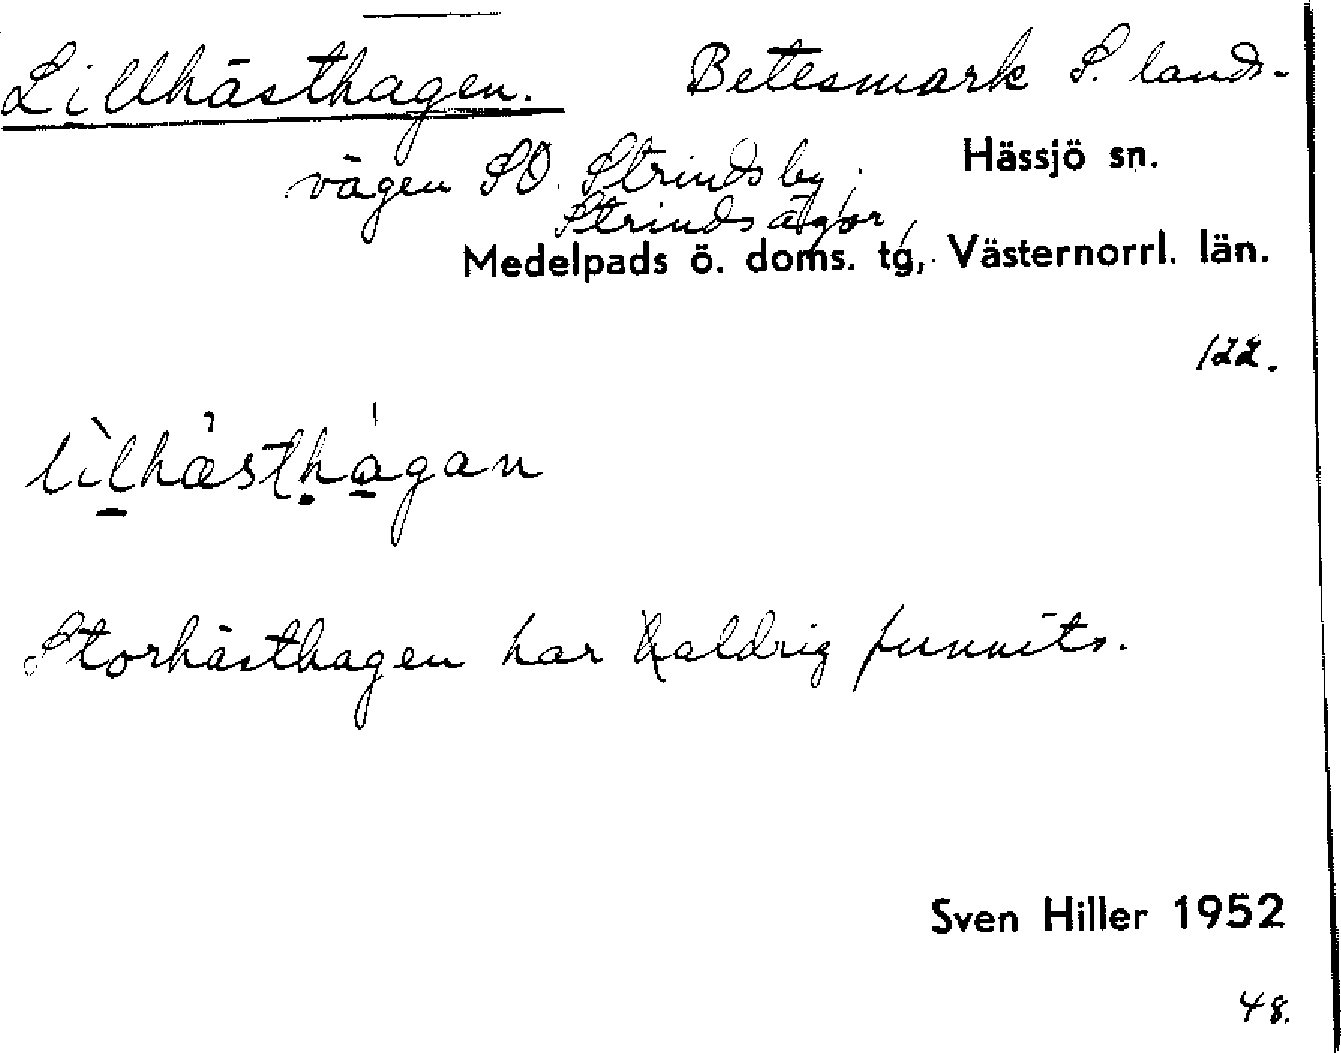 Lillhästhagen. Betesmark S. lands-
vägen SO. Strindsby, Hässjö sn.
Strinds ägor,
Medelpads ö. doms. tg, Västernorrl. län.
122.
lìlhæ̀sthágan
Storhästhagen har aldrig funnits.
Sven Hiller 1952
48.